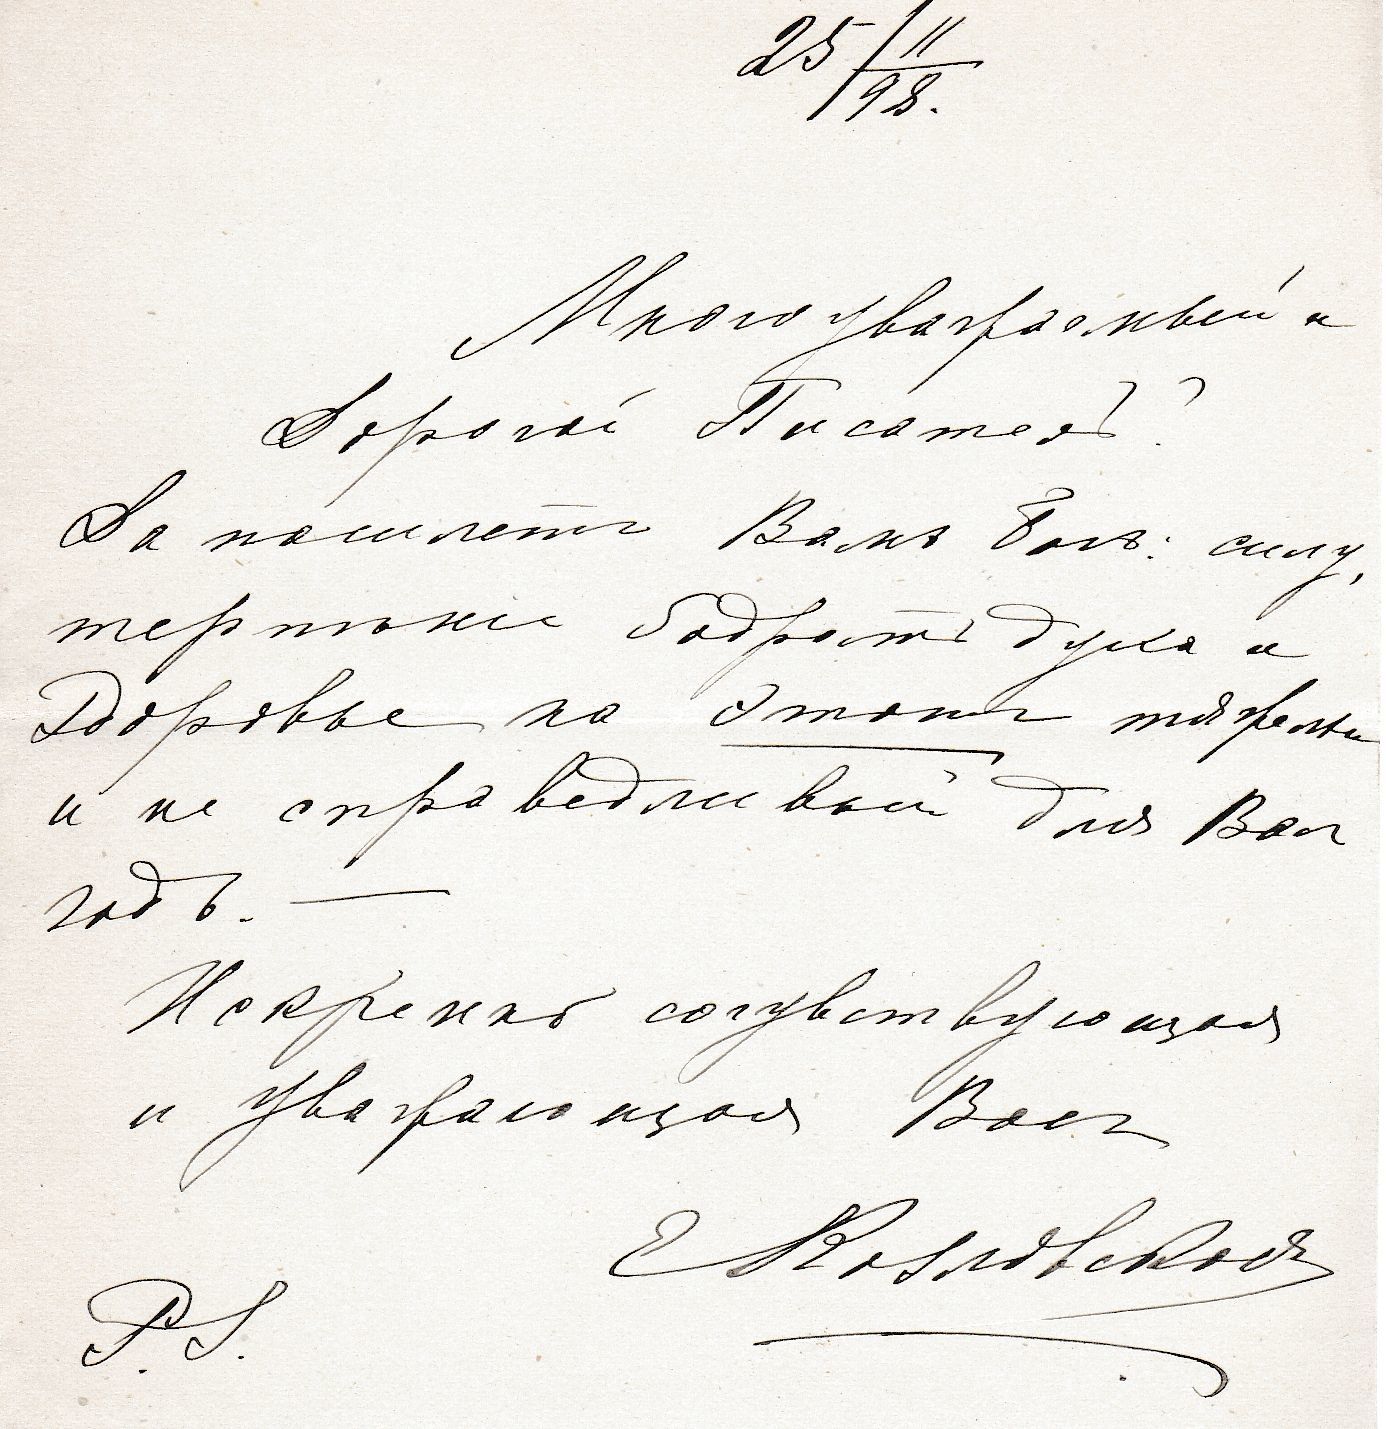 25/II 98.
Многоуважаемый и
Дорогой Писатель!
Да пошлетъ Вамъ Богъ: силу,
терпѣніе бодрость духа и
Здоровье на этотъ тяжелый
и не справедливый для Васъ
годъ. —
Искренно сочувствующая
и уважающая Васъ
Е Козловская
P. S.